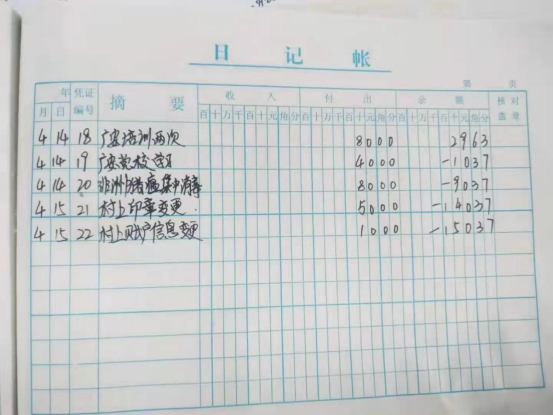 日记帐
第 页
年 凭证编号 摘要 收入 付出 余额 核对盖章
月 日 百十万千百十元角分 百十万千百十元角分 百十万千百十元角分
4 14 18 广安培训两次 8000 2963
4 14 19 广安党校学习 4000 -1037
4 14 20 非洲猪瘟集中消毒 8000 -9037
4 15 21 村上印章变更. 5000 -14037
4 15 22 村上账户信息变更 1000 -15037